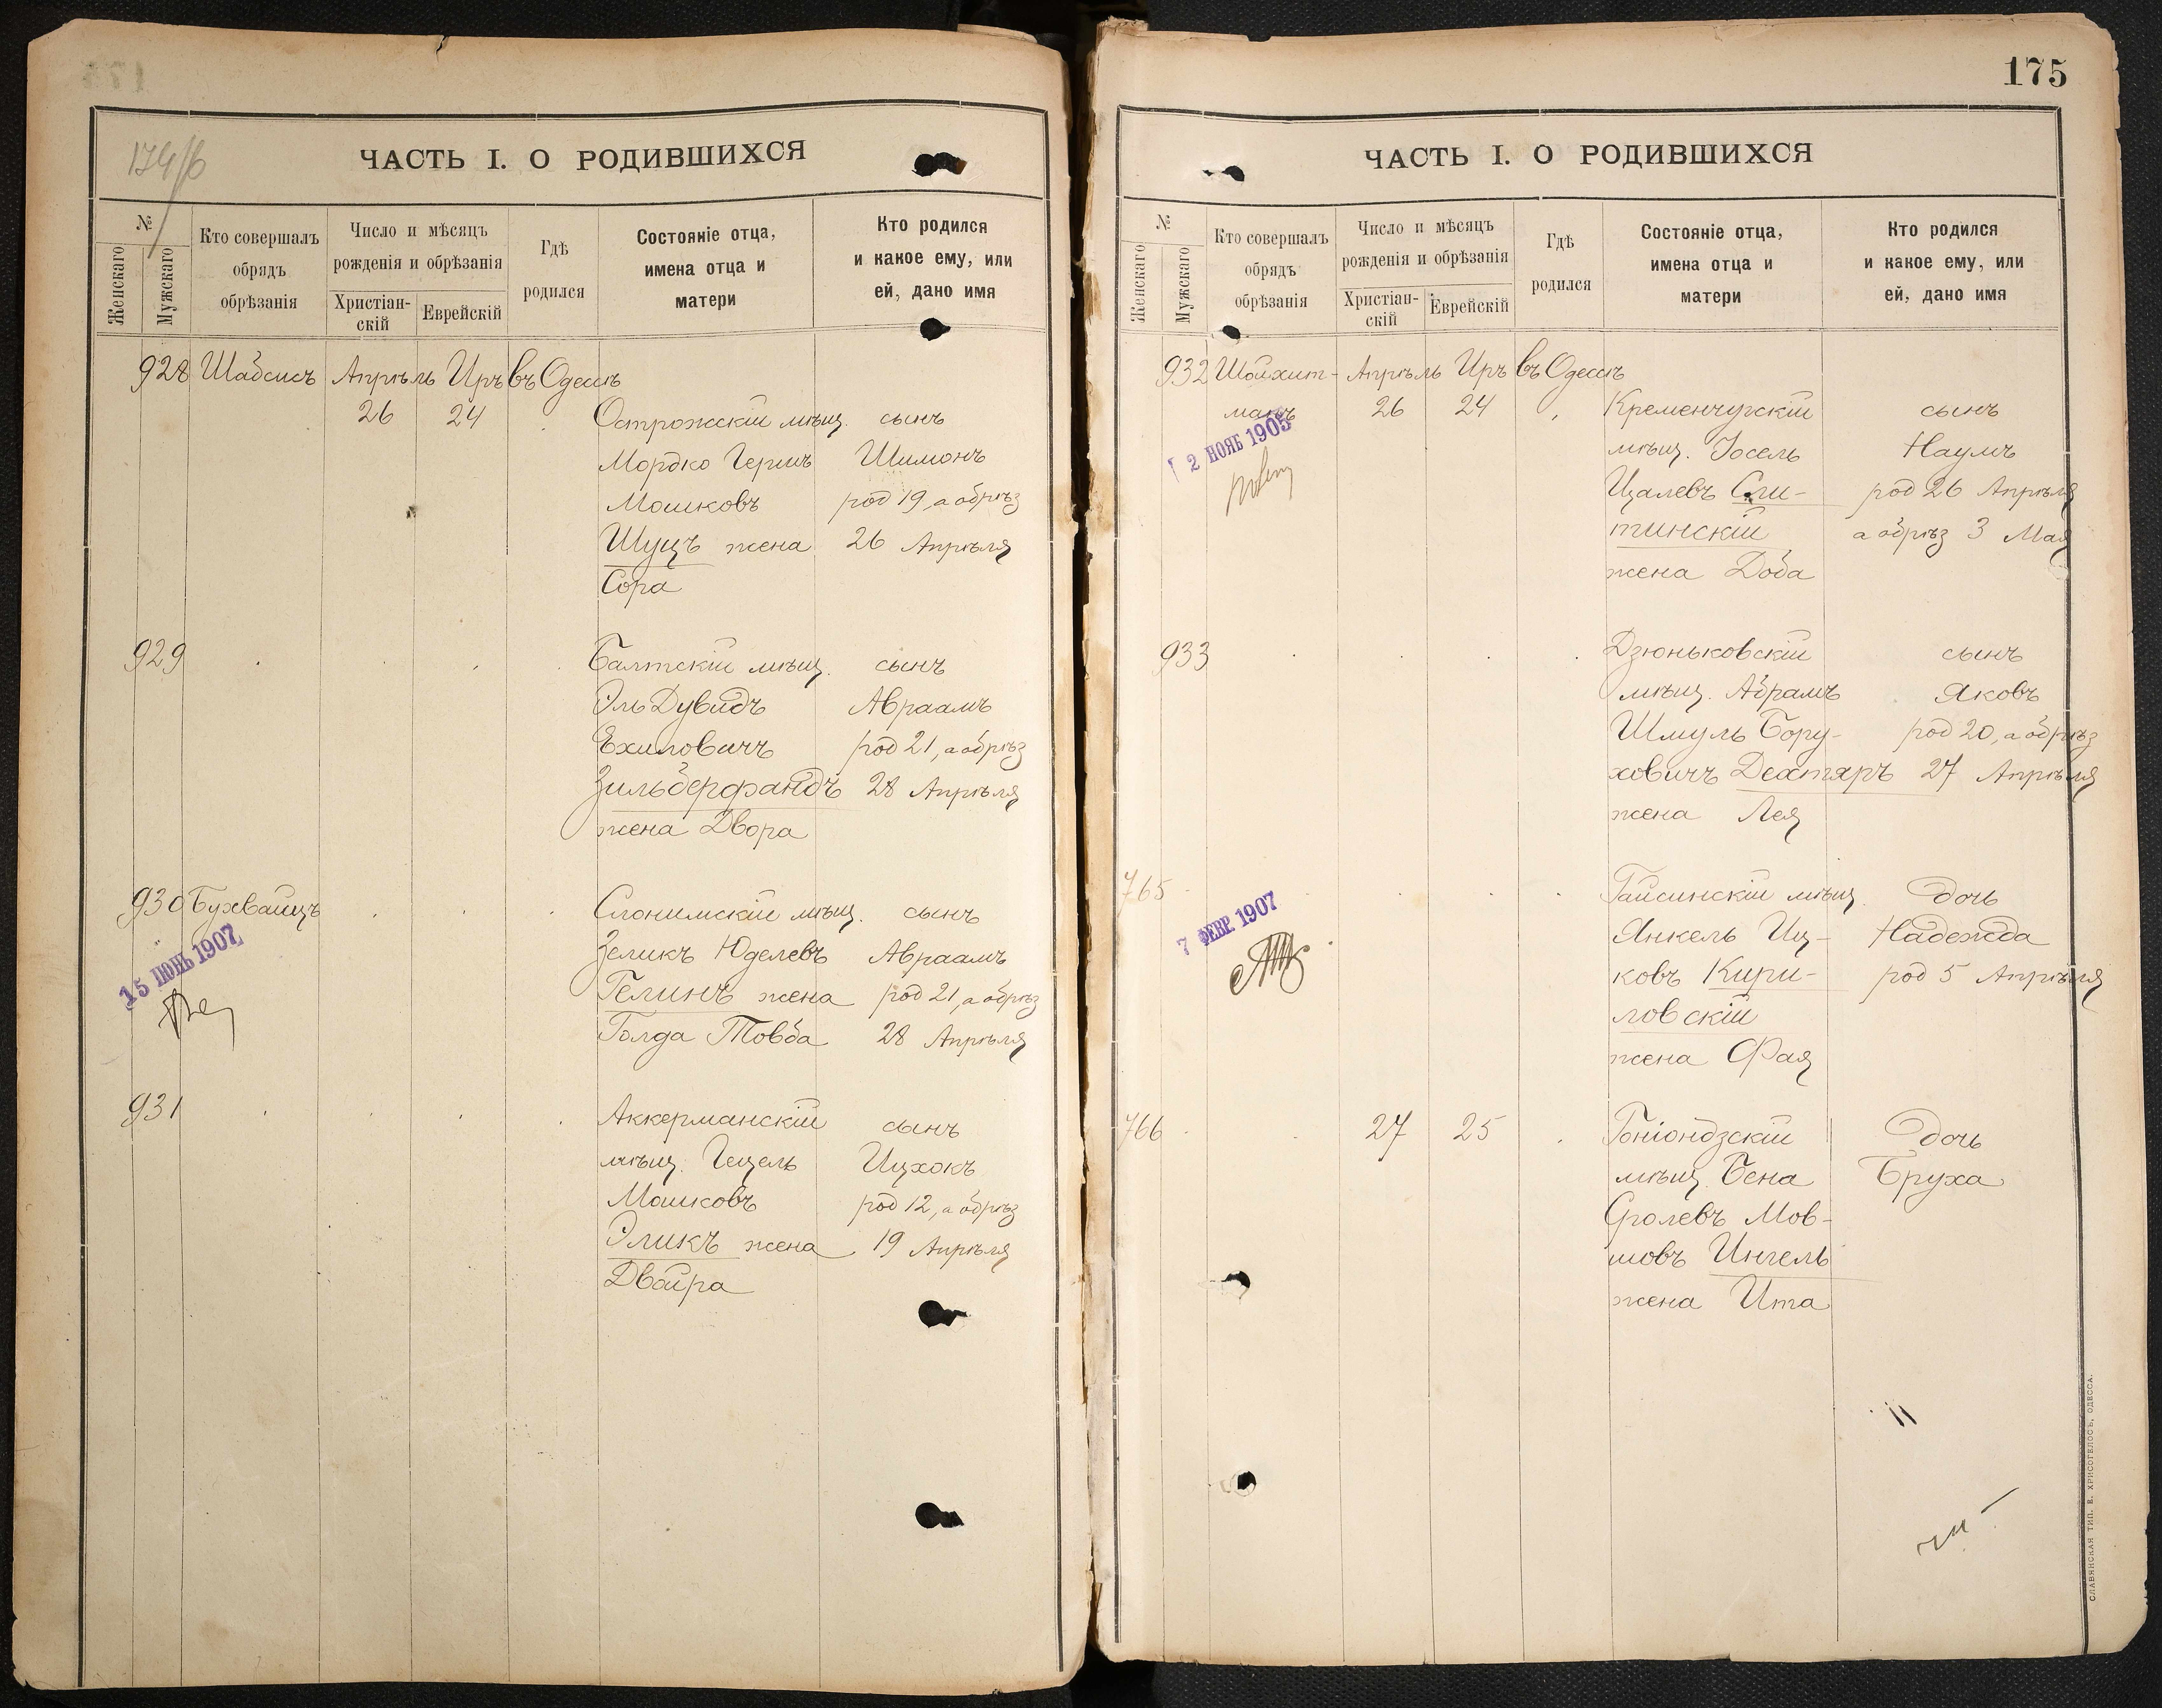 174/б
ЧАСТЬ I. О РОДИВШИХСЯ
№
Женскаго
Мужскаго
Кто совершалъ
обрядъ
обрѣзанія
Число и мѣсяцъ
рожденія и обрѣзанія
Христіан-
скій
Еврейскій
Гдѣ
родился
Состояніе отца,
имена отца и
матери
Кто родился
и какое ему, или
ей, дано имя
928 Шабсисъ Апрѣль Иръ въ Одессѣ
26 24 Острожскій мѣщ. сынъ
Мордко Гершъ Шимонъ
Мошковъ род 19, а обрѣз
Шуцъ жена 26 Апрѣля
Сора
929 Балтскій мѣщ. сынъ
Эль Дувидъ Авраамъ
Ехиловичъ род 21, а обрѣз
Зильберфандъ 28 Апрѣля
жена Двора
930 Бухвайцъ Слонимскій мѣщ. сынъ
15 ІЮНЬ 1907
Зеликъ Юделевъ Авраамъ
Гелинъ жена род 21, а обрѣз
Голда Товба 28 Апрѣля
931 Аккерманскій сынъ
мѣщ. Гецель Ицхокъ
Мошковъ род 12, а обрѣз
Эликъ жена 19 Апрѣля
Двойра
175
ЧАСТЬ I. О РОДИВШИХСЯ
№
Женскаго
Мужскаго
Кто совершалъ
обрядъ
обрѣзанія
Число и мѣсяцъ
рожденія и обрѣзанія
Христіан-
скій
Еврейскій
Гдѣ
родился
Состояніе отца,
имена отца и
матери
Кто родился
и какое ему, или
ей, дано имя
932 Шойхит- Апрѣль Иръ въ Одессѣ
манъ 26 24 Кременчугскій сынъ
2 НОЯБ 1905
мѣщ. Іосель Наумъ
Цалевъ Сли- род 26 Апрѣля
тинскій а обрѣз 3 Мая
жена Доба
933 Дзюньковскій сынъ
мѣщ. Абрамъ Яковъ
Шмуль Бору- род 20, а обрѣз
ховичъ Дехтяръ 27 Апрѣля
жена Лея
765 Гайсинскій мѣщ. дочь
7 ФЕВР. 1907
Янкель Иц- Надежда
ковъ Кири- род 5 Апрѣля
ловскій
жена Фая
766 27 25 Гоніондзскій дочь
мѣщ. Бена Бруха
Сролевъ Мов-
шовъ Ингель
жена Ита
СЛАВЯНСКАЯ ТИП. Е. ХРИСОГЕЛОСЪ, ОДЕССА.